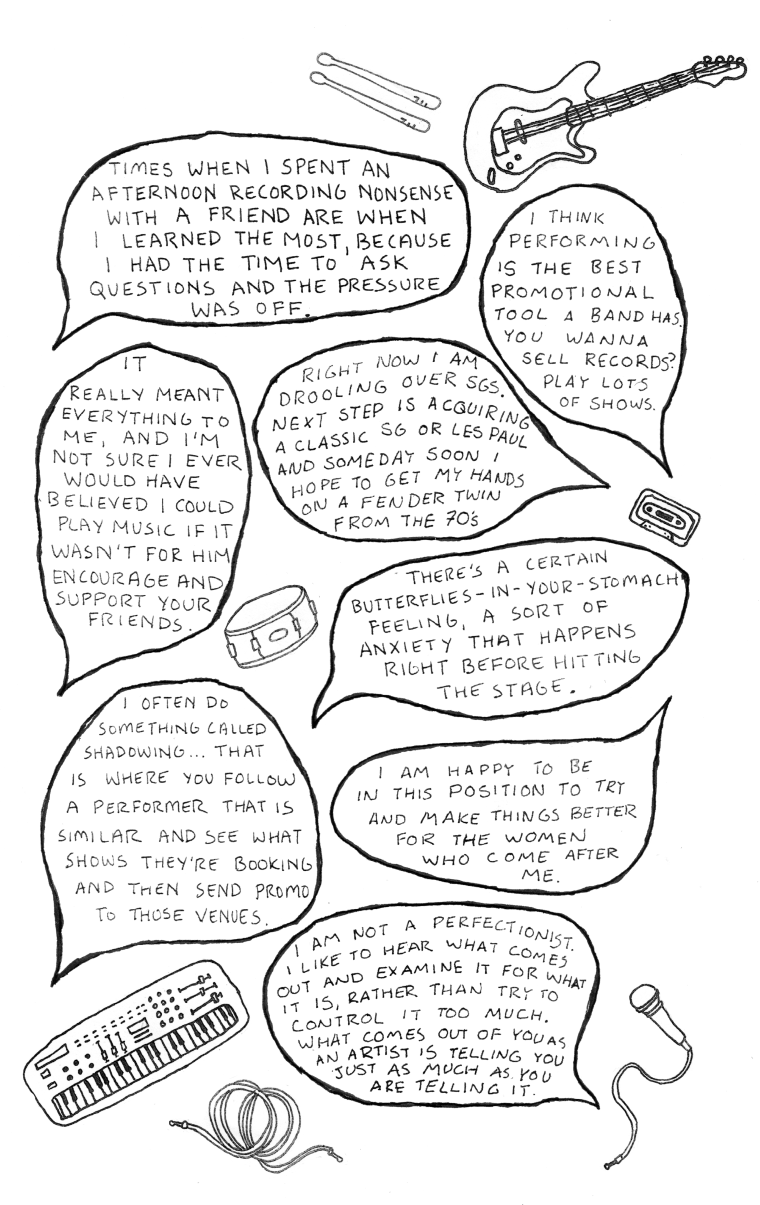 TIMES WHEN I SPENT AN
AFTERNOON RECORDING NONSENSE
WITH A FRIEND ARE WHEN
I LEARNED THE MOST, BECAUSE
I HAD THE TIME TO ASK
QUESTIONS AND THE PRESSURE
WAS OFF.
I THINK
PERFORMING
IS THE BEST
PROMOTIONAL
TOOL A BAND HAS.
YOU WANNA
SELL RECORDS?
PLAY LOTS
OF SHOWS.
IT
REALLY MEANT
EVERYTHING TO
ME, AND I'M
NOT SURE I EVER
WOULD HAVE
BELIEVED I COULD
PLAY MUSIC IF IT
WASN'T FOR HIM
ENCOURAGE AND
SUPPORT YOUR
FRIENDS.
RIGHT NOW I AM
DROOLING OVER SGS.
NEXT STEP IS ACQUIRING
A CLASSIC SG OR LES PAUL
AND SOMEDAY SOON I
HOPE TO GET MY HANDS
ON A FENDER TWIN
FROM THE 70's
THERE'S A CERTAIN
BUTTERFLIES-IN-YOUR-STOMACH
FEELING, A SORT OF
ANXIETY THAT HAPPENS
RIGHT BEFORE HITTING
THE STAGE.
I OFTEN DO
SOMETHING CALLED
SHADOWING... THAT
IS WHERE YOU FOLLOW
A PERFORMER THAT IS
SIMILAR AND SEE WHAT
SHOWS THEY'RE BOOKING
AND THEN SEND PROMO
TO THOSE VENUES.
I AM HAPPY TO BE
IN THIS POSITION TO TRY
AND MAKE THINGS BETTER
FOR THE WOMEN
WHO COME AFTER
ME.
I AM NOT A PERFECTIONIST.
I LIKE TO HEAR WHAT COMES
OUT AND EXAMINE IT FOR WHAT
IT IS, RATHER THAN TRY TO
CONTROL IT TOO MUCH.
WHAT COMES OUT OF YOU AS
AN ARTIST IS TELLING YOU
JUST AS MUCH AS YOU
ARE TELLING IT.